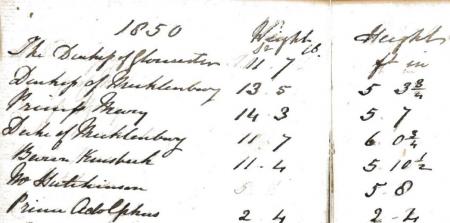 1850 Weight Height
st lb ft in
The Duchess of Gloucester 11. 7
Duchess of Mecklenburg 13. 5 5 3 3/4
Princess Mary 14. 3 5. 7
Duke of Mecklenburg 11. 7 6 0 3/4
Baron 11. 4 5 10 1/2
Mr Hutchinson 5 8
Prince Adolphus 2 4 2. 4